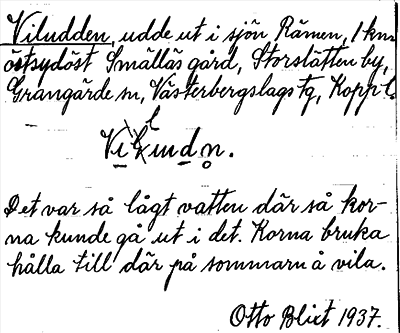 Viludden, udde ut i sjön Rämen, 1 km
östsydöst Smällås gård, Storslätten by,
Grangärde sn, Västerbergslags tg, Koppb.l.
Viludn.
Det var så lågt vatten där så kor-
na kunde gå ut i det. Korna bruka
hålla till där på sommarn å vila.
Otto Blixt 1937.